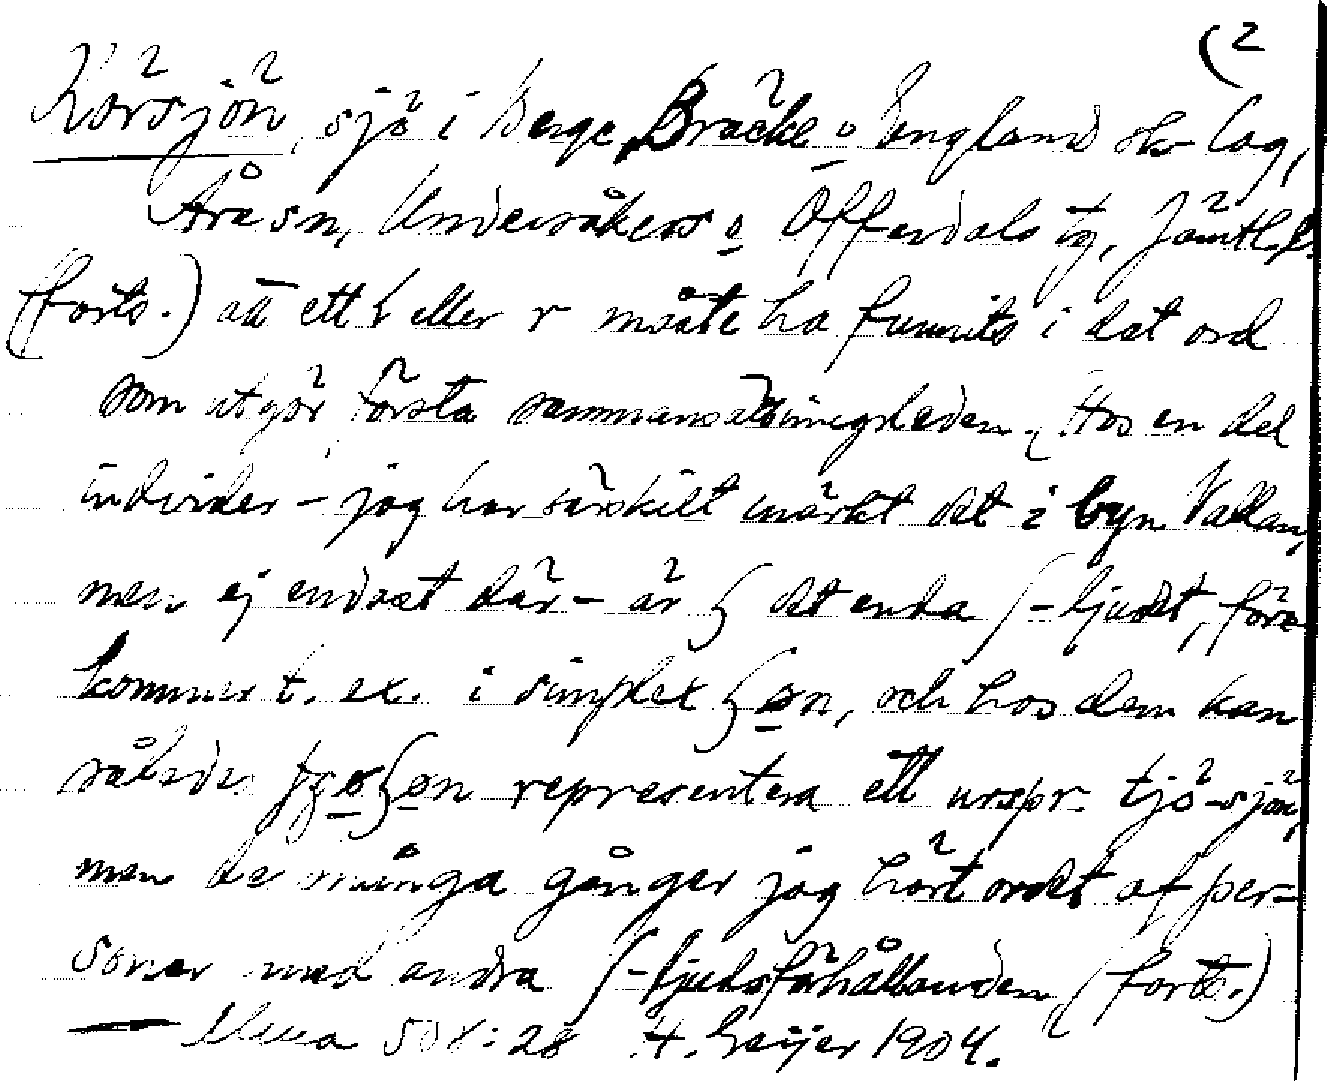 (2
Körsjön, sjö i Berge, Bräcke o England sk lag,
Åre sn, Undersåkers o Offerdals tg, Jämtl.
(forts.) att ett l eller r måste ha funnits i det ord
som utgör första sammansättningsleden. Hos en del
individer – jag har särskilt märkt det i byn Vallan,
men ej endast där – är ʃ det enda ʃ-ljudet, före-
kommer t. ex. i simplex ʃøn, och hos dem kan
således representera ett urspr. tjö-sjön,
men de många gånger jag hört ordet af per-
soner med andra ʃ-ljudsförhållanden (forts.)
508:28 H. Geijer 1904.